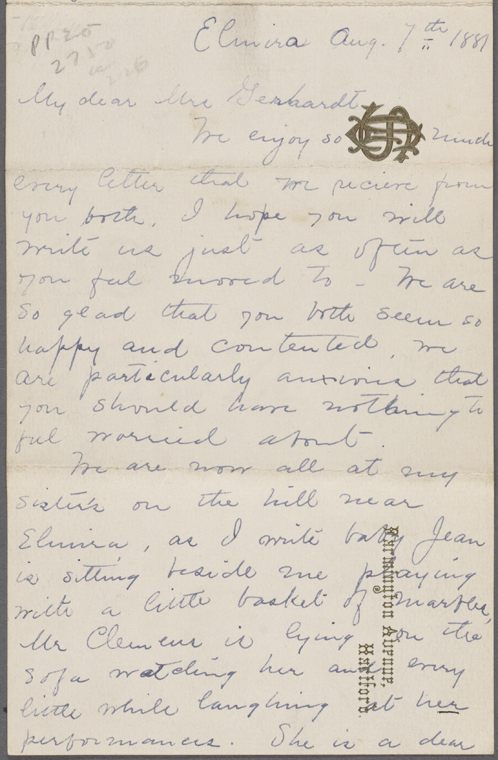 PP 25
2750
Elmira Aug. 7th 1881
My dear Mrs Gerhardt
We enjoy so much
every letter that we recieve from
you both. I hope you will
write us just as often as
you feel moved to - We are
so glad that you both seem so
happy and contented, we
are particularly anxious that
you should have nothing to
feel worried about.
We are now all at my
sister's on the hill near
Elmira, as I write baby Jean
is sitting beside me playing
with a little basket of marbles,
Mr Clemens is lying on the
sofa watching her and every
little while laughing at her
performances. She is a dear
Farmington Avenue,
Hartford.